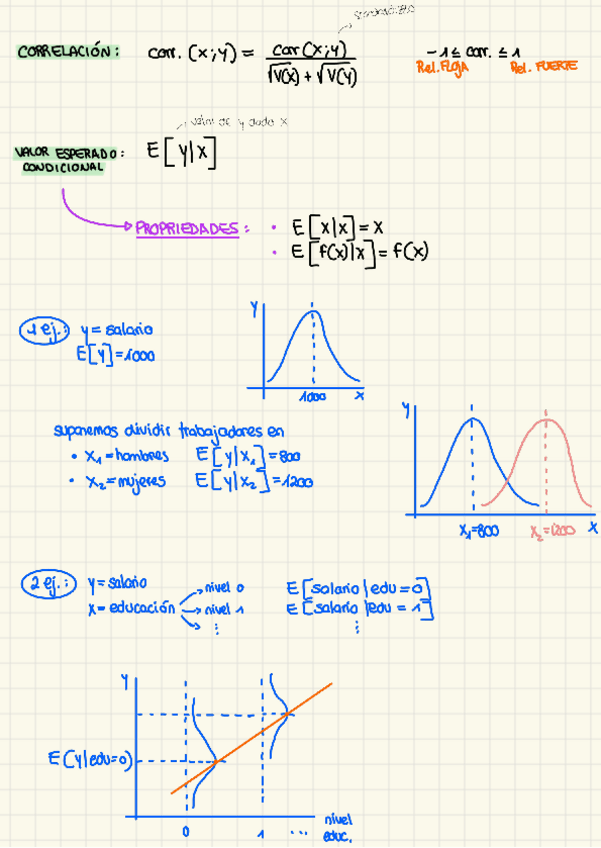 CORRELACIÓN: corr. (x;y) = cor(x;y) / √V(x) + √V(y)
-1 ≤ corr. ≤ 1
Rel. FLOJA Rel. FUERTE
valor de y dado x
VALOR ESPERADO CONDICIONAL: E[y|x]
PROPRIEDADES: • E[x|x] = x
• E[f(x)|x] = f(x)
1 ej.: y = salario
E[y] = 1000
y
1000 x
suponemos dividir trabajadores en
• x₁ = hombres E[y|x₁] = 800
• x₂ = mujeres E[y|x₂] = 1200
y
x₁=800 x₂=1200 x
2 ej.: y = salario
x = educación
nivel 0
nivel 1
⋮
E[salario|edu = 0]
E[salario|edu = 1]
⋮
y
E(y|edu=0)
0 1 ... nivel educ.